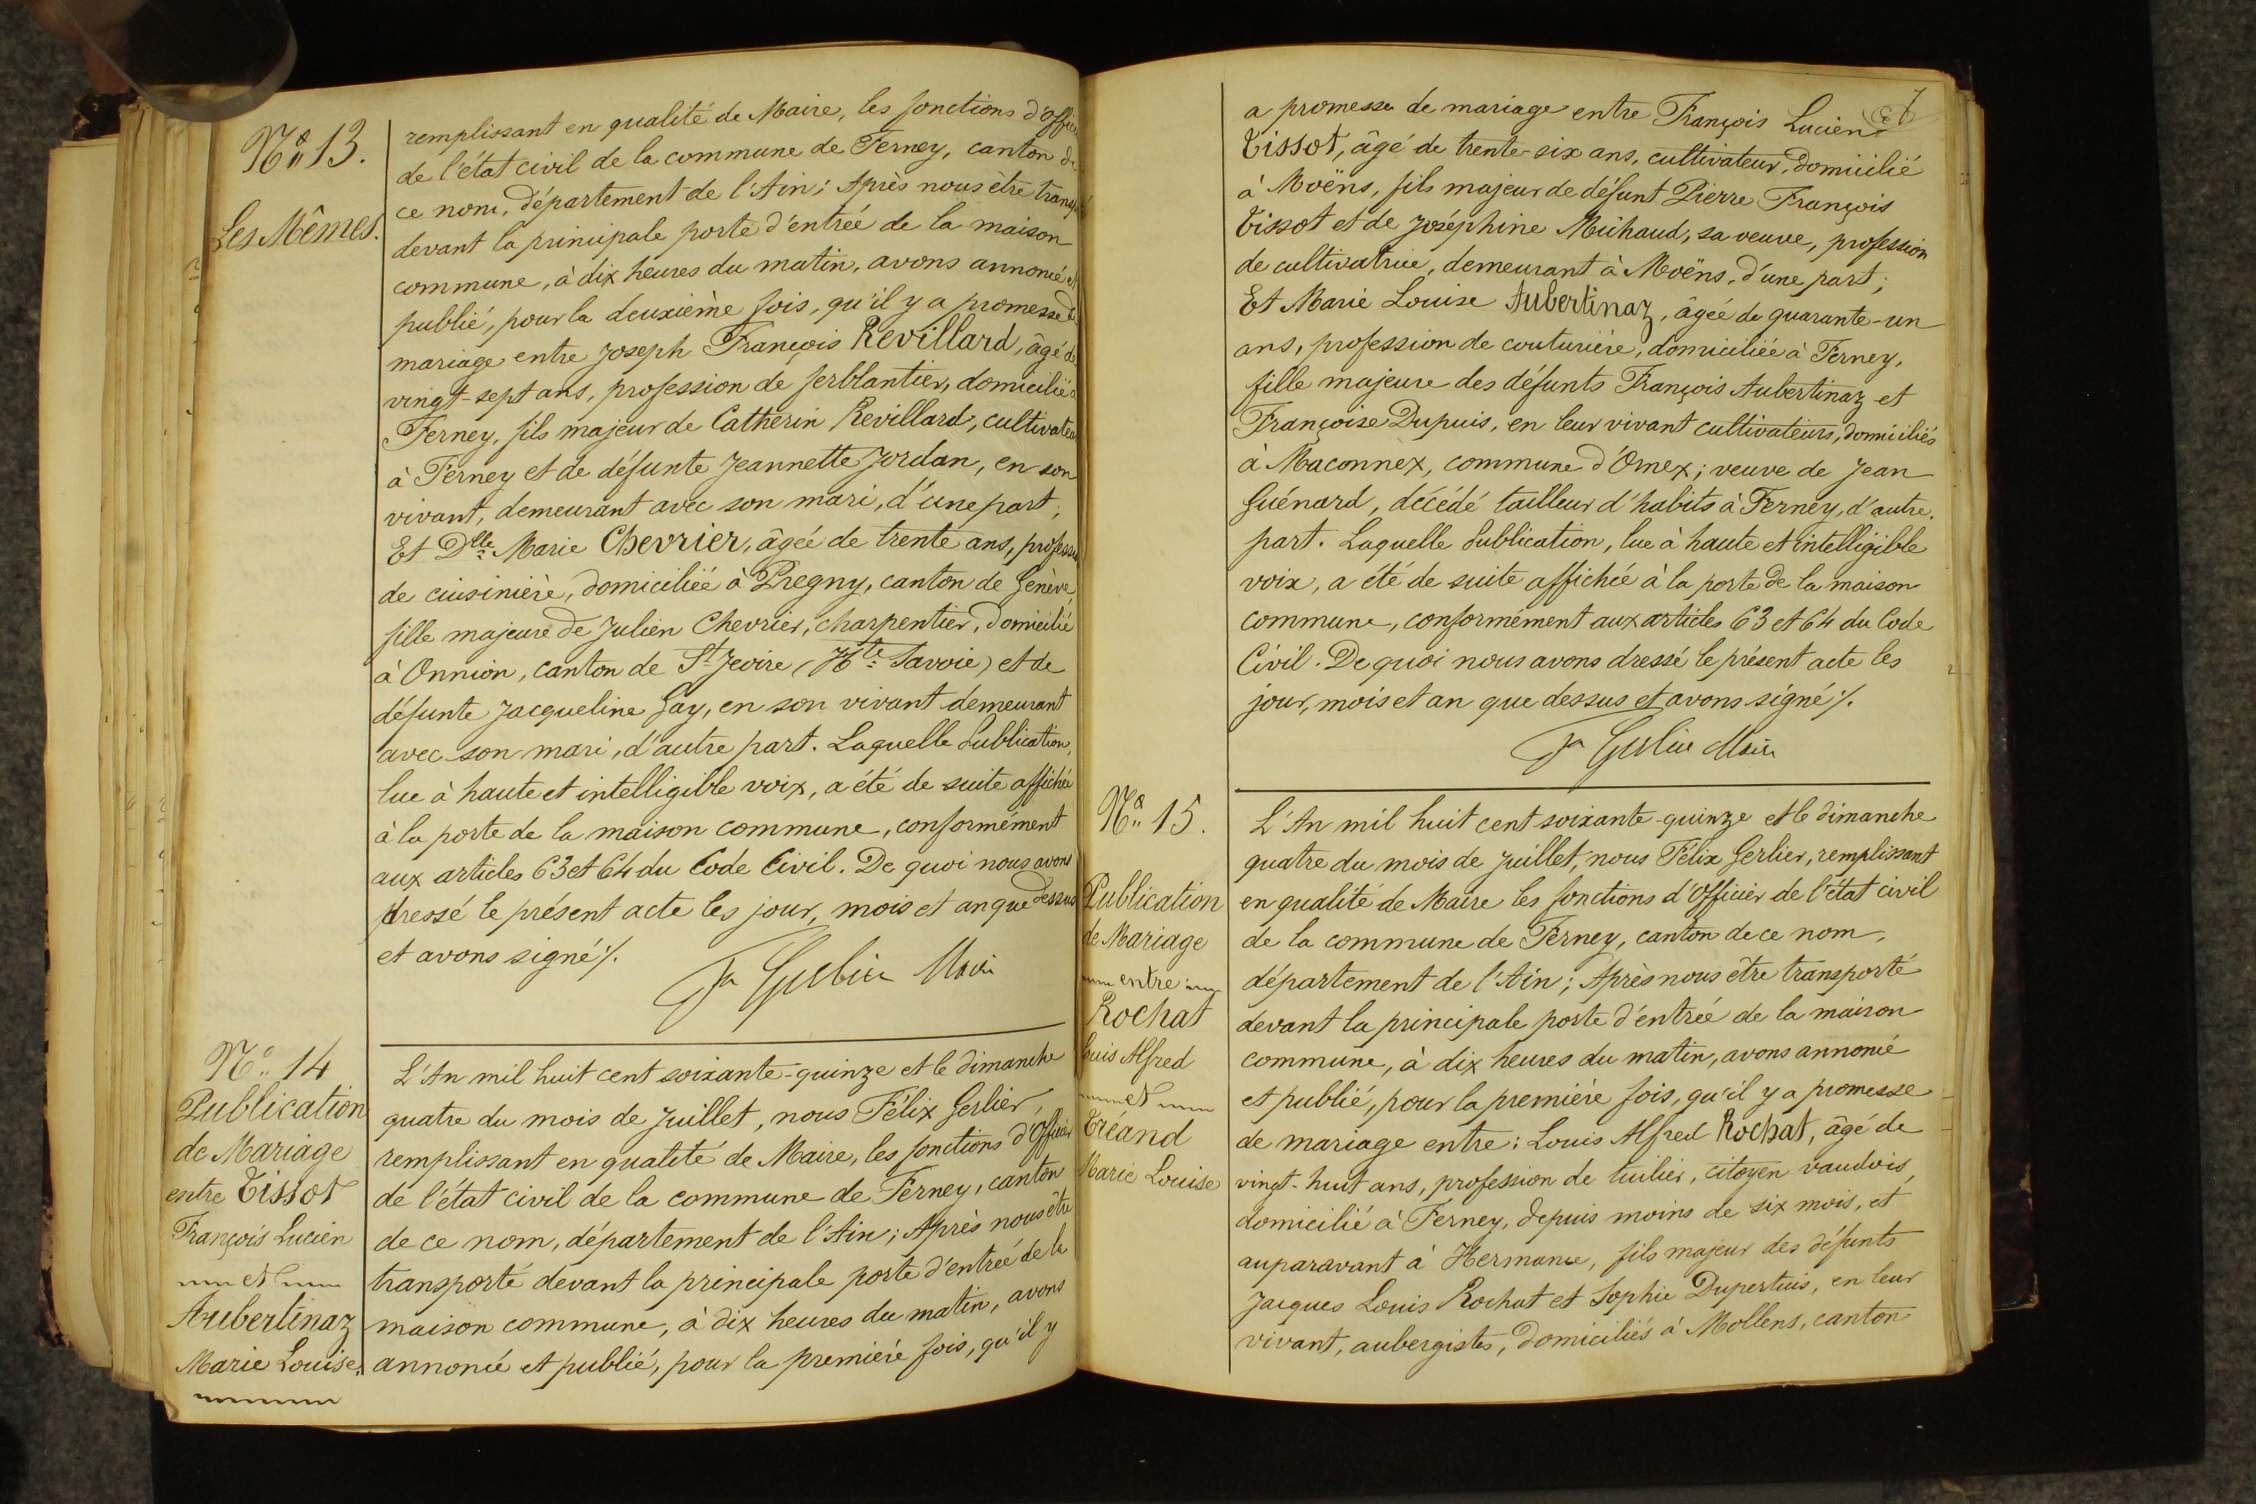 Nº 13.
Les Mêmes.
remplissant en qualité de Maire, les fonctions d'Offici
de l'état civil de la commune de Ferney, canton de
ce nom, département de l'Ain; Après nous être transp
devant la principale porte d'entrée de la maison
commune, à dix heures du matin, avons annoncé et
publié, pour la deuxième fois, qu'il y a promesse de
mariage entre Joseph François Revillard, âgé de
vingt-sept ans, profession de ferblantier, domicilié à
Ferney, fils majeur de Catherin Revillard, cultivateur
à Ferney et de défunte Jeannette Jordan, en son
vivant, demeurant avec son mari, d'une part;
Et Dlle Marie Chevrier, âgée de trente ans, professi
de cuisinière, domiciliée à Pregny, canton de Genève,
fille majeure de Julien Chevrier, charpentier, domicilié
à Onnion, canton de St Jeoire (Hte Savoie) et de
défunte Jacqueline Gay, en son vivant demeurant
avec son mari, d'autre part. Laquelle Publication,
lue à haute et intelligible voix, a été de suite affichée
à la porte de la maison commune, conformément
aux articles 63 et 64 du Code Civil. De quoi nous avons
dressé le présent acte les jour, mois et an que dessus
et avons signé ./.
Gerlier Maire
Nº 14
Publication
de Mariage
entre Tissot
François Lucien
et
Aubertinaz
Marie Louise.
L'An mil huit cent soixante-quinze et le dimanche
quatre du mois de Juillet, nous Félix Gerlier,
remplissant en qualité de Maire, les fonctions d'Officier
de l'état civil de la commune de Ferney, canton
de ce nom, département de l'Ain; Après nous être
transporté devant la principale porte d'entrée de la
maison commune, à dix heures du matin, avons
annoncé et publié, pour la première fois, qu'il y
7
a promesse de mariage entre François Lucien
Tissot, âgé de trente-six ans, cultivateur, domicilié
à Moëns, fils majeur de défunt Pierre François
Tissot et de Joséphine Michaud, sa veuve, profession
de cultivatrice, demeurant à Moëns, d'une part;
Et Marie Louise Aubertinaz, âgée de quarante-un
ans, profession de couturière, domiciliée à Ferney,
fille majeure des défunts François Aubertinaz et
Françoise Dupuis, en leur vivant cultivateurs, domiciliés
à Maconnex, commune d'Ornex; veuve de Jean
Guénard, décédé tailleur d'habits à Ferney, d'autre
part. Laquelle Publication, lue à haute et intelligible
voix, a été de suite affichée à la porte de la maison
commune, conformément aux articles 63 et 64 du Code
Civil. De quoi nous avons dressé le présent acte les
jour, mois et an que dessus et avons signé ./.
Gerlier Maire
Nº 15.
Publication
de Mariage
entre
Rochat
Louis Alfred
et
Tréand
Marie Louise
L'An mil huit cent soixante-quinze et le dimanche
quatre du mois de Juillet, nous Félix Gerlier, remplissant
en qualité de Maire les fonctions d'Officier de l'état civil
de la commune de Ferney, canton de ce nom,
département de l'Ain; Après nous être transporté
devant la principale porte d'entrée de la maison
commune, à dix heures du matin, avons annoncé
et publié, pour la première fois, qu'il y a promesse
de mariage entre: Louis Alfred Rochat, âgé de
vingt-huit ans, profession de tuilier, citoyen vaudois,
domicilié à Ferney, depuis moins de six mois, et
auparavant à Hermance, fils majeur des défunts
Jacques Louis Rochat et Sophie Dupertuis, en leur
vivant, aubergistes, domiciliés à Mollens, canton